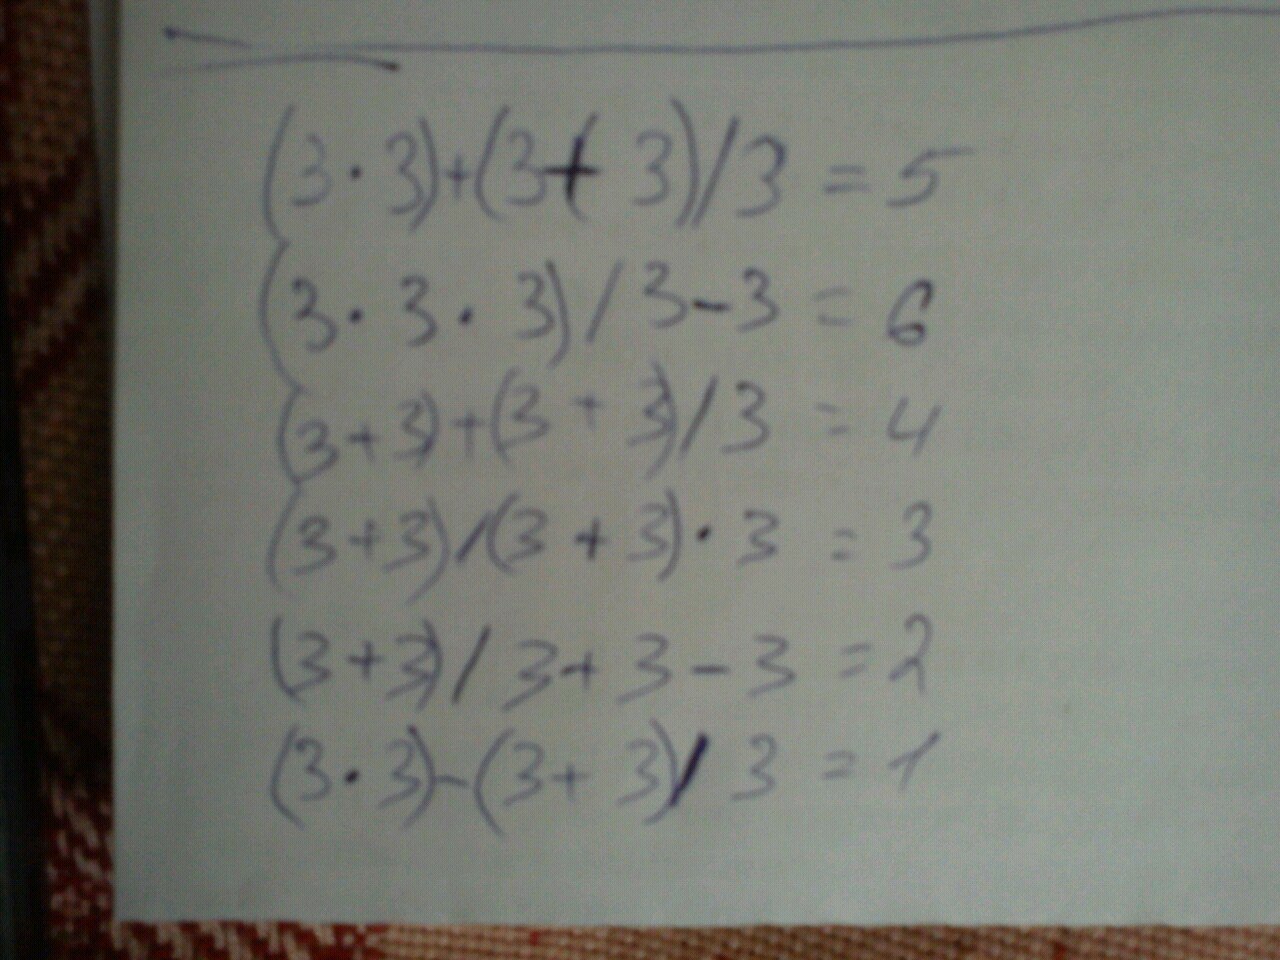 (3·3)+(3+(3)/3=5
(3·3·3)/3-3=6
(3+3)+(3+3)/3=4
(3+3)/(3+3)·3=3
(3+3)/3+3-3=2
(3·3)-(3+3)/3=1